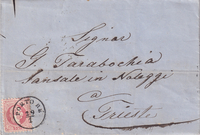 Signor
G Tarabochia
Sensale in Noleggi
a
Trieste